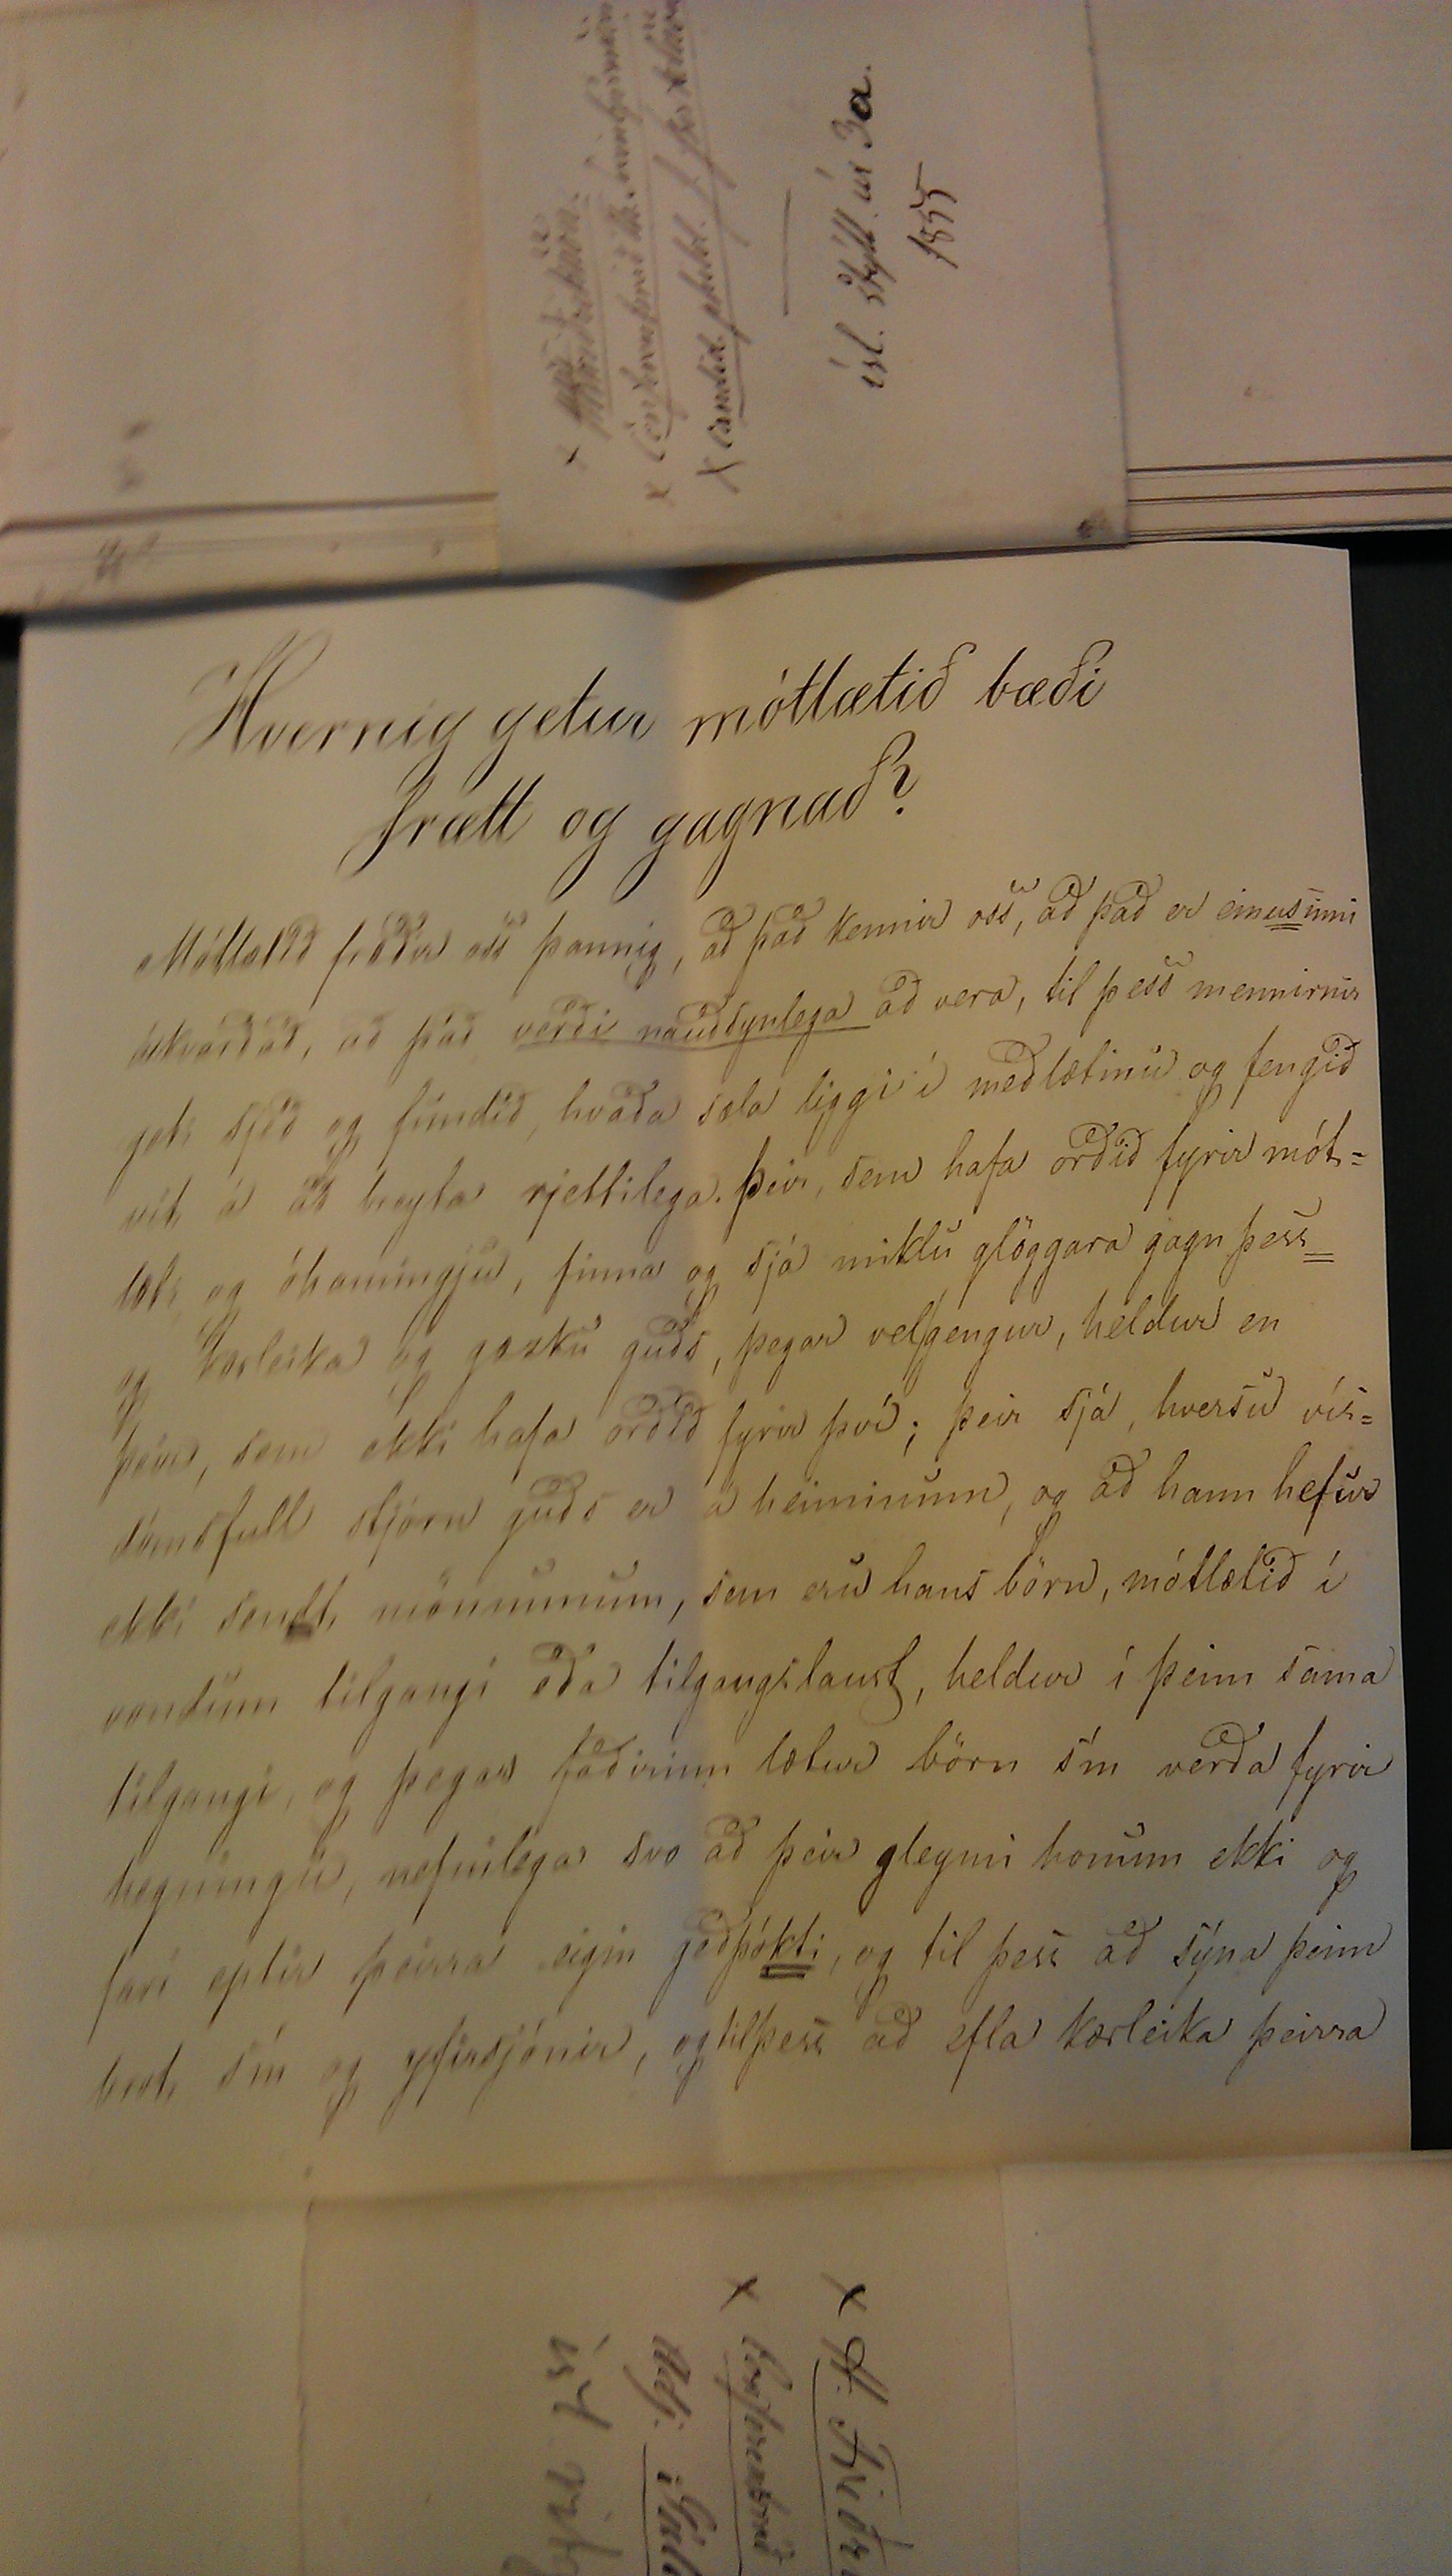 ísl. stýll. úr 3a.
1855
Hvernig getur mótlætið bæði
frætt og gagnað?
Mótlætið fræðir oss þannig, að það kennir oss, að það er einusinni
ákvarðað, að það verði nauðsynlega að vera, til þess mennirnir
geti sjeð og fundið, hvaða sæla liggi í meðlætinu og fengið
vit á að neyta rjettilega. Þeir, sem hafa orðið fyrir mót=
læti og óhamingju, finna og sjá miklu glöggara gagn þess
og kærleika og gæzku guðs, þegar velgengur, heldur en
þeir, sem ekki hafa orðið fyrir því; þeir sjá, hversu vís=
dómsfull stjórn guðs er á heiminum, og að hann hefur
ekki sendt mönnunum, sem eru hans börn, mótlætið í
vondum tilgangi eða tilgangslaust, heldur í þeim sama
tilgangi, og þegar faðirinn lætur börn sín verða fyrir
hegningu, nefnilega svo að þeir gleymi honum ekki og
fari eptir þeirra eigin geðþókti, og til þess að sýna þeim
brot sín og yfirsjónir, og tilþess að efla kærleika þeirra